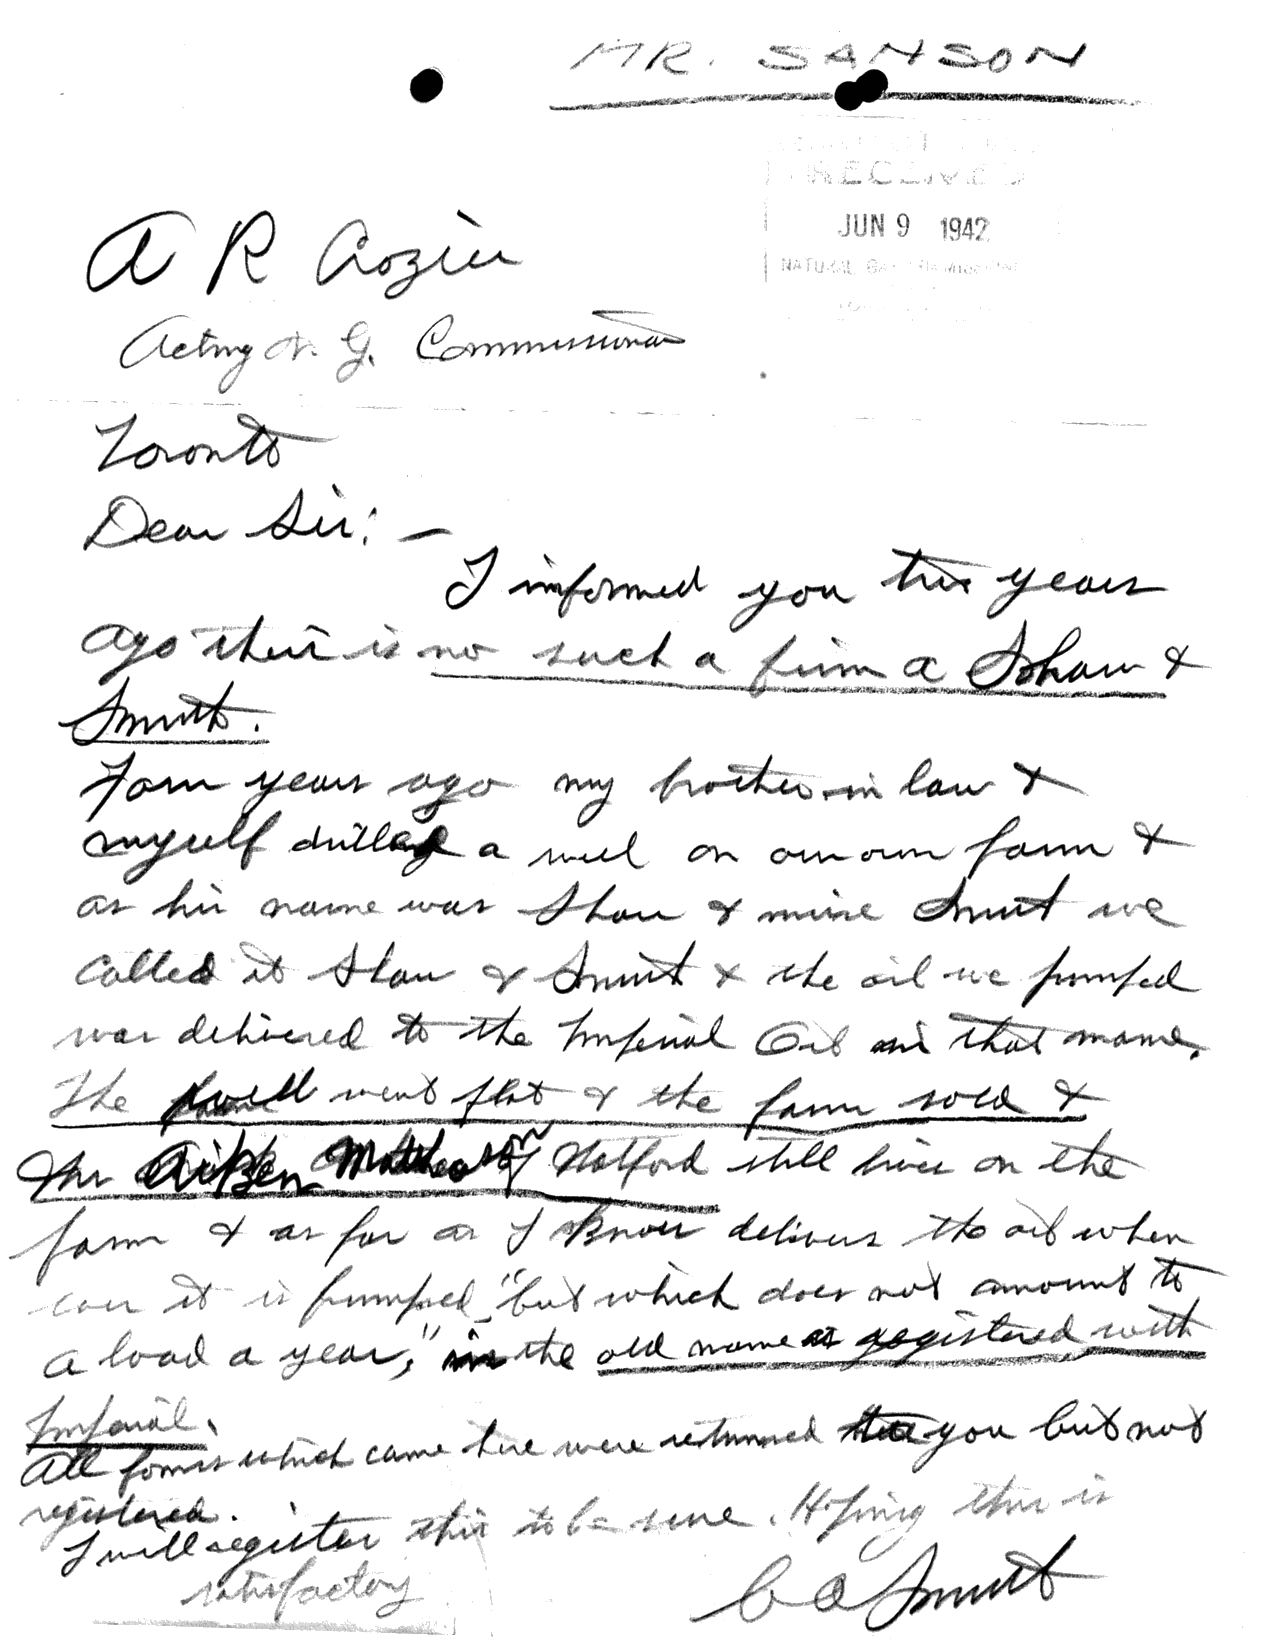 MR. SANSON
RECEIVED
JUN 9 1942
NATURAL GAS
A R Crozier
Acting N. G. Commissioner
Toronto
Dear Sir: —
I informed you two years
ago their is no such a firm a Shaw &
Smut.
Four years ago my brother-in law &
myself drilled a well on our own farm &
as his name was Shaw & mine Smut we
called it Shaw & Smut & the oil we pumped
was delivered to the Imperial Oil in that name.
The well went flat & the farm sold &
Mr Aitken Matheson Watford still lives on the
farm & as far as I know delivers the oil when
ever it is pumped, "but which does not amount to
a load a year," in the old name as registered with
Imperial.
All forms which came here were returned to you but not
registered.
I will register this to be sure. Hoping this is
satisfactory
C A Smut